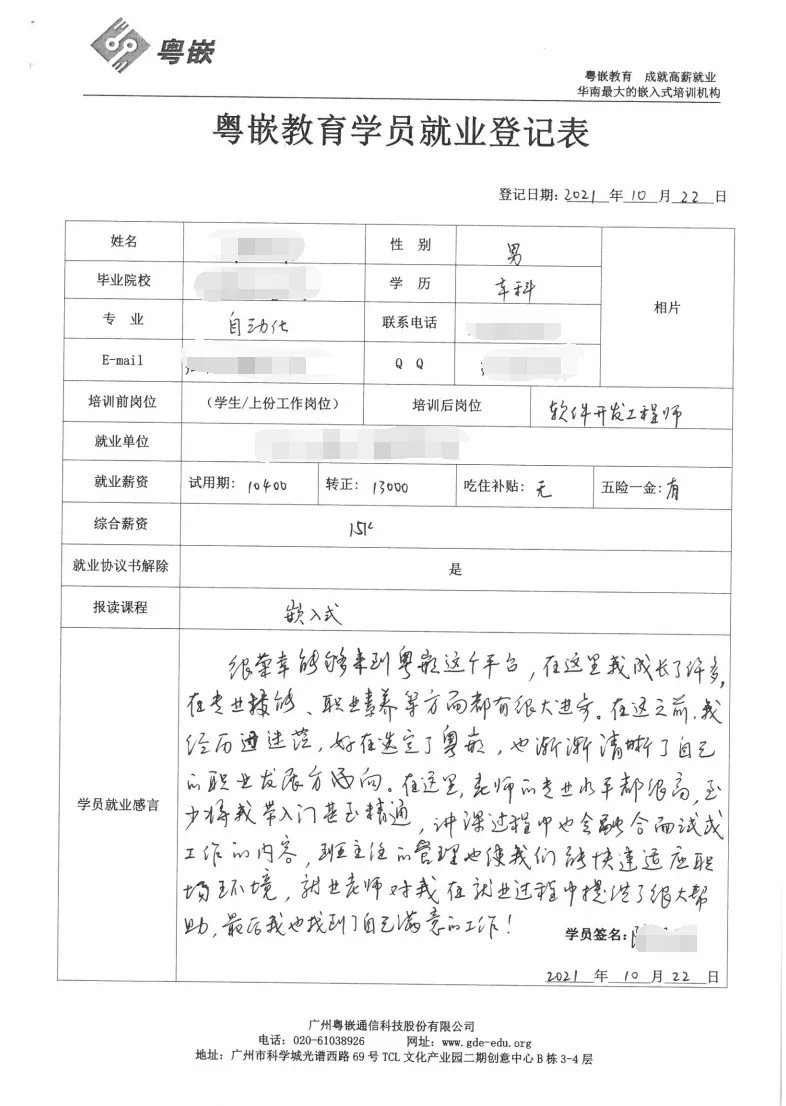 粤嵌
粤嵌教育 成就高薪就业
华南最大的嵌入式培训机构
粤嵌教育学员就业登记表
登记日期：2021 年 10 月 22 日
姓名 性 别 男 相片
毕业院校 学 历 本科
专 业 自动化 联系电话
E-mail Q Q
培训前岗位 （学生/上份工作岗位） 培训后岗位 软件开发工程师
就业单位
就业薪资 试用期：10400 转正：13000 吃住补贴：无 五险一金：有
综合薪资 15K
就业协议书解除 是
报读课程 嵌入式
学员就业感言
很荣幸能够来到粤嵌这个平台，在这里我成长了许多，
在专业技能、职业素养等方面都有很大进步。在这之前，我
经历过迷茫，好在选定了粤嵌，也渐渐清晰了自己
的职业发展方向。在这里，老师的专业水平都很高，至
少将我带入门甚至精通，讲课过程中也会融合面试或
工作的内容，班主任的管理也使我们能快速适应职
场环境，就业老师对我在就业过程中提供了很大帮
助，最后我也找到了自己满意的工作！
学员签名：陈
2021 年 10 月 22 日
广州粤嵌通信科技股份有限公司
电话：020-61038926 网址：www.gde-edu.org
地址：广州市科学城光谱西路 69 号 TCL 文化产业园二期创意中心 B 栋 3-4 层